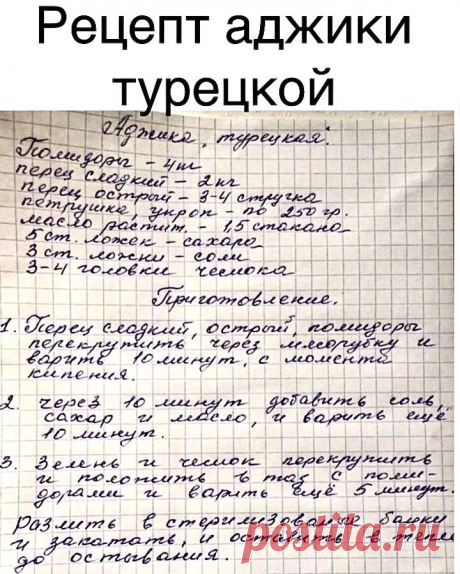 Рецепт аджики
турецкой
Аджика, турецкая.
Помидоры - 4кг
перец сладкий - 2кг
перец острый - 3-4 стручка
петрушка, укроп - по 250 гр.
масло растит. - 1,5 стакана
5 ст. ложек - сахара
3 ст. ложки - соли
3-4 головки чеснока
Приготовление.
1. Перец сладкий, острый, помидоры
перекрутить через мясорубку и
варить 10 минут, с момента
кипения.
2. через 10 минут добавить соль,
сахар и масло, и варить ещё
10 минут.
3. Зелень и чеснок перекрутить
и положить в таз с поми-
дорами и варить ещё 5 минут.
Разлить в стеризованые банки
и закатать, и оставить в тепле
до остывания.
postila.ru